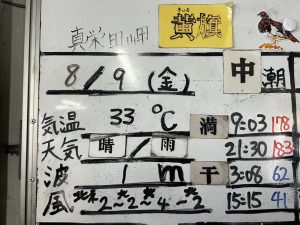 真栄田岬
きいろ
黄旗
8/9(金) 中潮
気温 33℃ 満 9:03 178
天気 晴/雨 21:30 183
波 1m 干 3:08 62
風 2~2~4~2 15:15 41